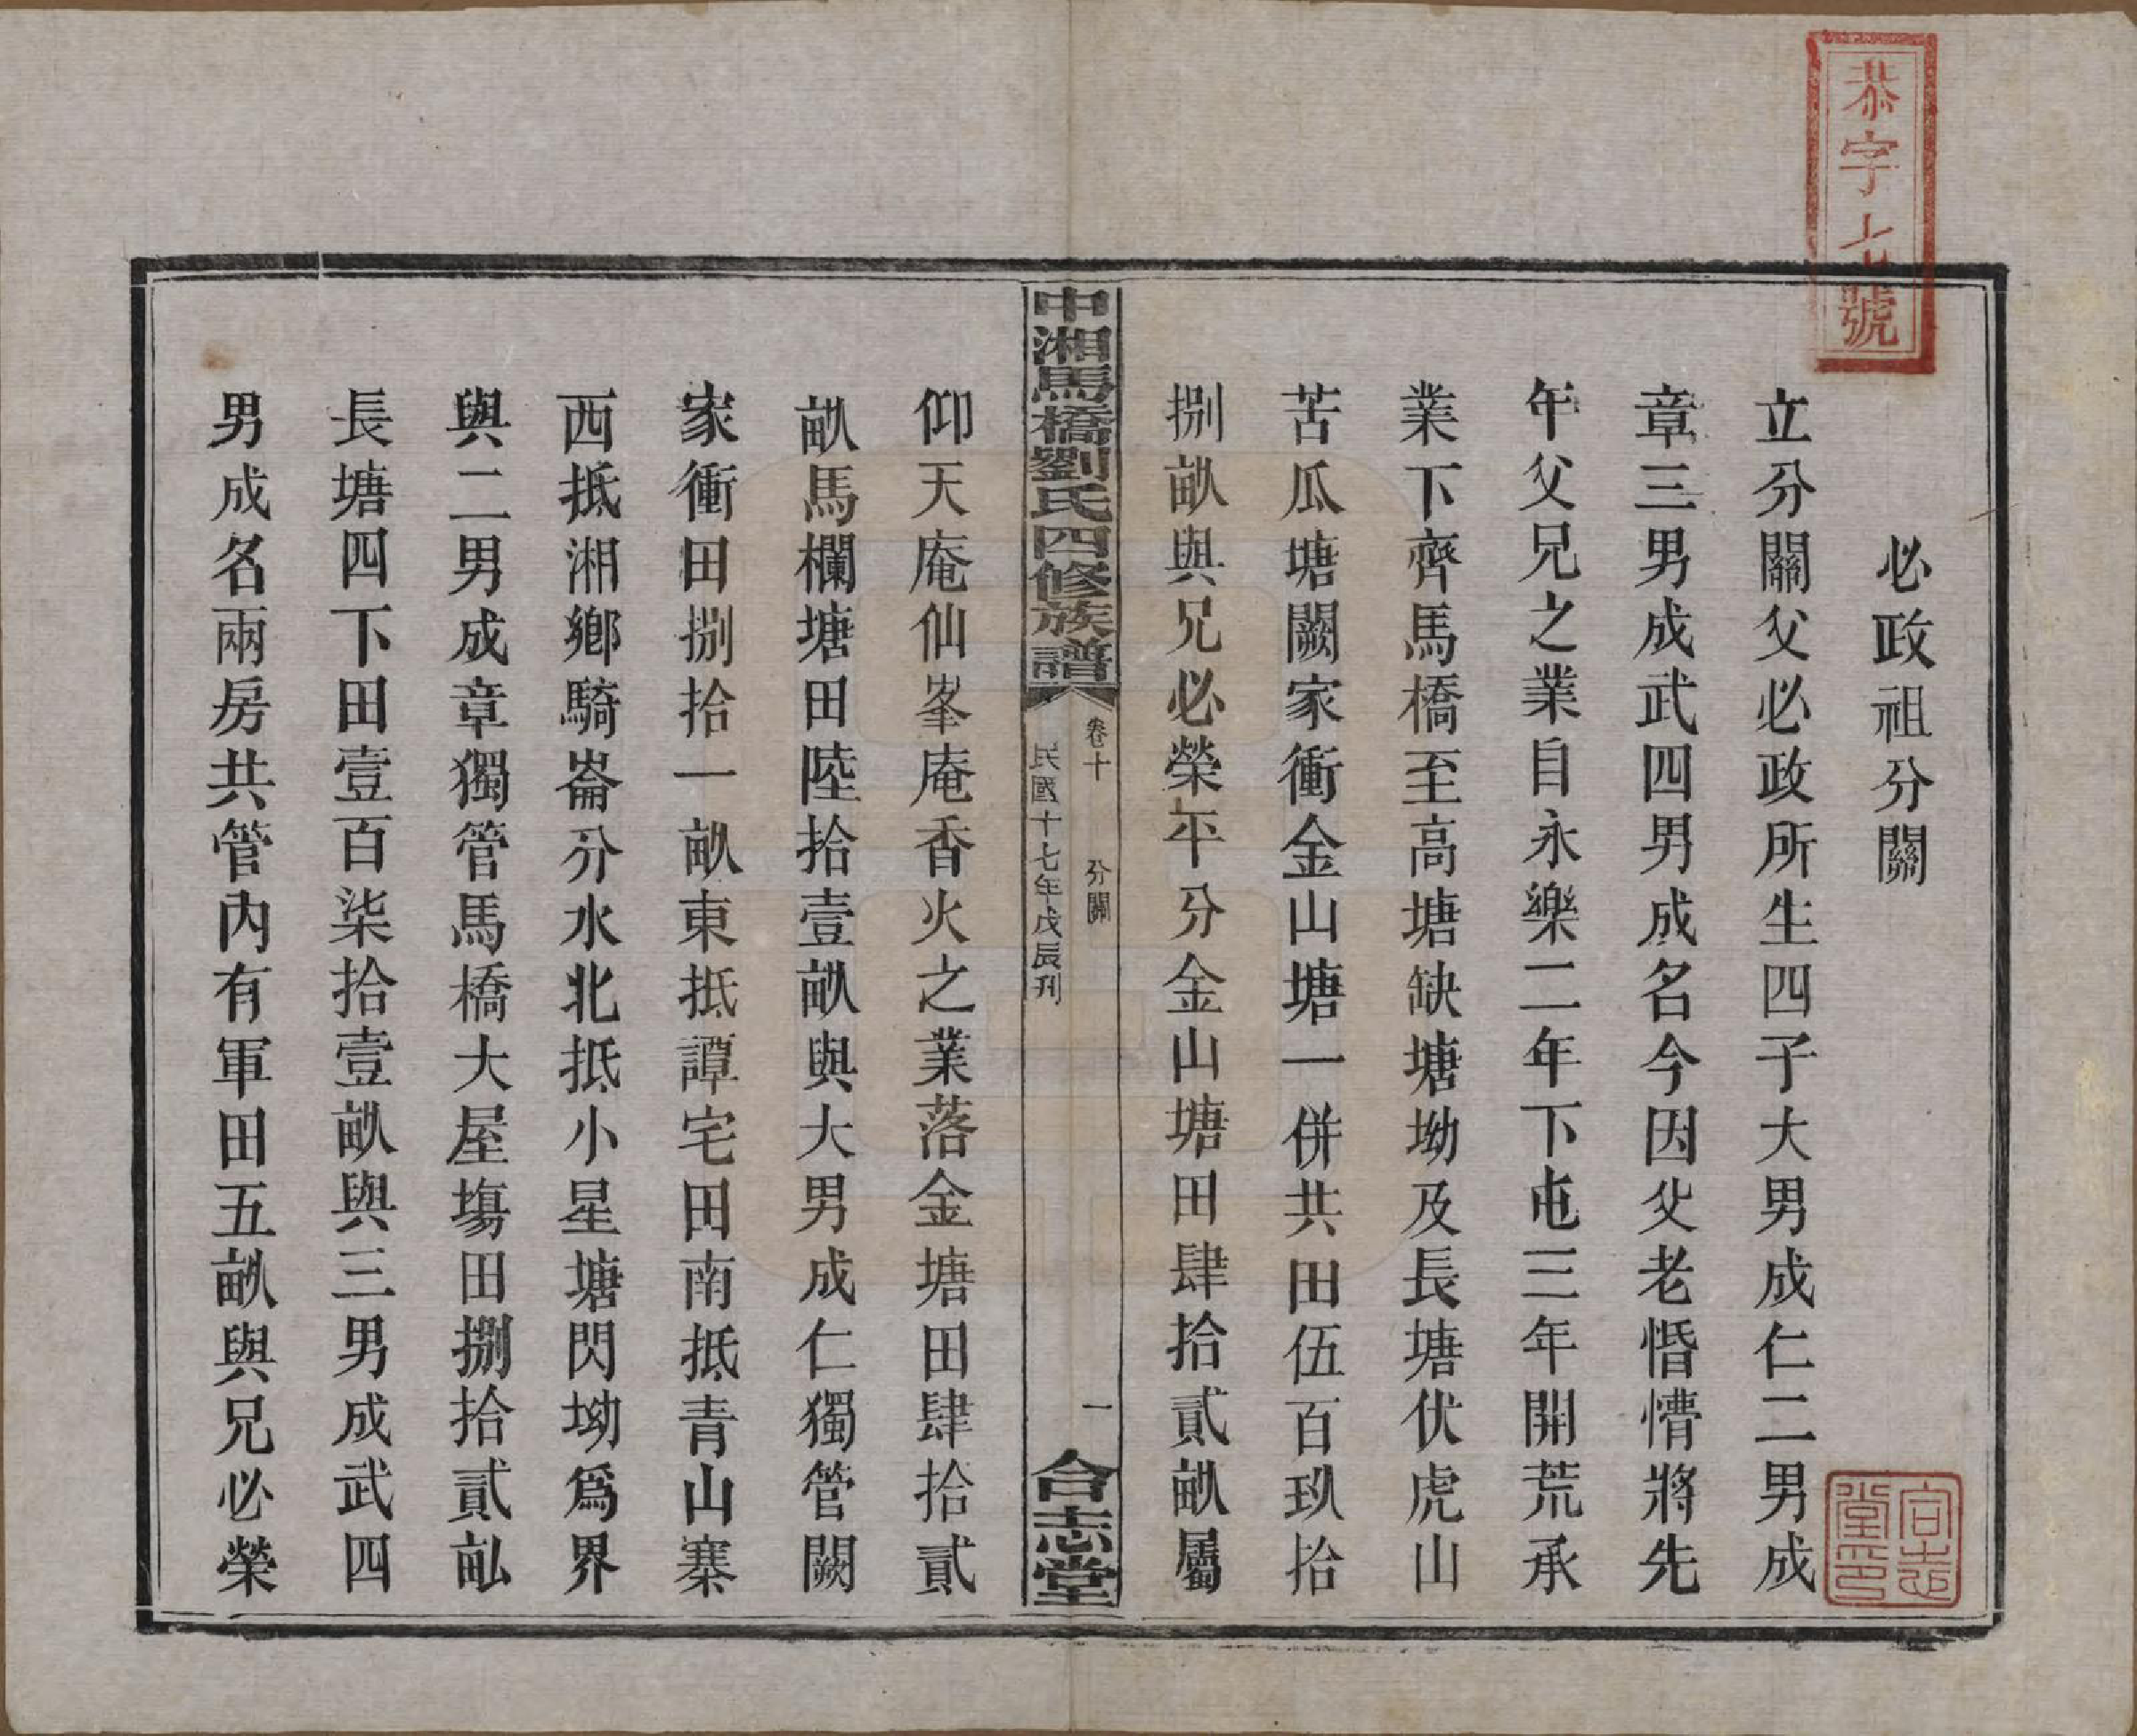 恭字七號
必政祖分關
立分關父必政所生四子大男成仁二男成
章三男成武四男成名今因父老惛懵將先
年父兄之業自永樂二年下屯三年開荒承
業下齊馬橋至高塘缺塘塘坳及長塘伏虎山
苦瓜塘闕家衝金山塘一併共田伍百玖拾
捌畝與兄必榮平分金山塘田肆拾貳畝屬
中湘馬橋劉氏四修族譜
卷十 分關 一
民國十七年戊辰刊
合志堂
仰天庵仙峯庵香火之業落金塘田肆拾貳
畝馬欄塘田陸拾壹畝與大男成仁獨管闕
家衝田捌拾一畝東抵譚宅田南抵青山寨
西抵湘鄉騎崙分水北抵小星塘閃坳爲界
與二男成章獨管馬橋大屋塲田捌拾貳畝
長塘四下田壹百柒拾壹畝與三男成武四
男成名兩房共管內有軍田五畝與兄必榮
合志堂印